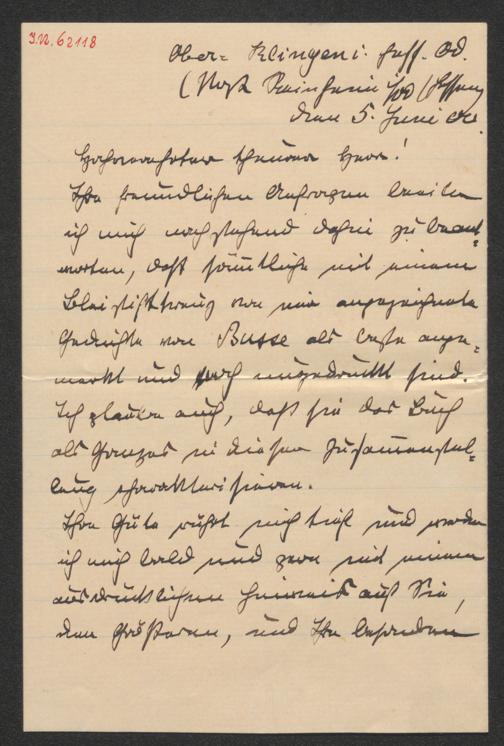 J.N. 62118
Ober-Klingen i. Hess. Od.
(Post Reinheim i/Od (Hessen
den 5. Juni
Hochverehrter theurer Herr!
Ihre freundlichen Anfragen beeile
ich mich nachstehend dahin zu beant-
worten, daß sämtliche mit einem
Bleistiftkreuz von mir angezeichnete
Gedichte von Busse als beste ange-
merkt und noch ungedruckt sind.
Ich glaube auch, daß sie das Buch
als Ganzes in dieser Zusammenstel-
lung charakterisieren.
Ihre Güte rührt mich tief und werde
ich mich bald und zwar mit einem
ausdrücklichen Hinweis auf Sie,
den Größeren, und Ihr besonderen